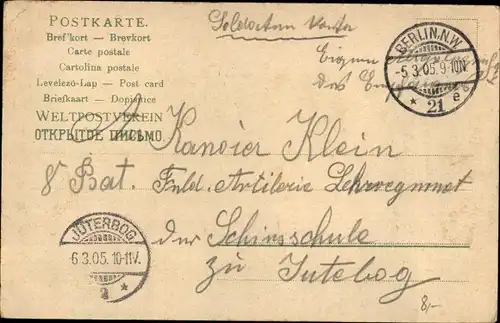 POSTKARTE.
Bref'kort — Brevkort
Carte postale
Cartolina postale
Levelező-Lap — Post card
Briefkaart — Dopisnice
WELTPOSTVEREIN
ОТКРЫТОЕ ПИСЬМО.
Soldaten Karte
Eigene
des
BERLIN, N.W.
5.3.05.9-10N.
* 21 e
Kanoier Klein
8 Bat. Feld. Artilerie Lehrregimet
der Schiesschule
zu Jutebog
JÜTERBOG
6.3.05.10-11V.
2 *
8,-